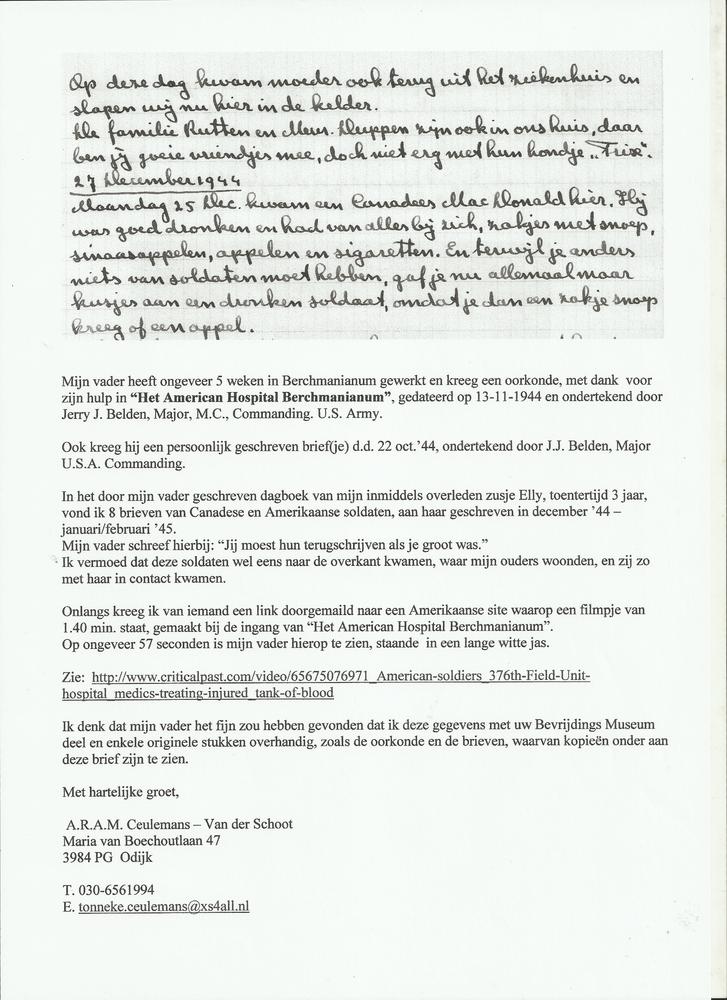 Op deze dag kwam moeder ook terug uit het ziekenhuis en
slapen wij nu hier in de kelder.
De familie Rutten en Mevr. Kluppen zijn ook in ons huis, daar
ben jij goeie vriendjes mee, doch niet erg met hun hondje „Trix".
27 December 1944
Maandag 25 Dec. kwam een Canadees Mac Donald hier. Hij
was goed dronken en had van alles bij zich, zakjes met snoep,
sinaasappelen, appelen en sigaretten. En terwijl je anders
niets van soldaten moet hebben, gaf je nu allemaal maar
kusjes aan een dronken soldaat, omdat je dan een zakje snoep
kreeg of een appel.
Mijn vader heeft ongeveer 5 weken in Berchmanianum gewerkt en kreeg een oorkonde, met dank voor
zijn hulp in “Het American Hospital Berchmanianum”, gedateerd op 13-11-1944 en ondertekend door
Jerry J. Belden, Major, M.C., Commanding. U.S. Army.
Ook kreeg hij een persoonlijk geschreven brief(je) d.d. 22 oct.’44, ondertekend door J.J. Belden, Major
U.S.A. Commanding.
In het door mijn vader geschreven dagboek van mijn inmiddels overleden zusje Elly, toentertijd 3 jaar,
vond ik 8 brieven van Canadese en Amerikaanse soldaten, aan haar geschreven in december ’44 –
januari/februari ’45.
Mijn vader schreef hierbij: “Jij moest hun terugschrijven als je groot was.”
Ik vermoed dat deze soldaten wel eens naar de overkant kwamen, waar mijn ouders woonden, en zij zo
met haar in contact kwamen.
Onlangs kreeg ik van iemand een link doorgemaild naar een Amerikaanse site waarop een filmpje van
1.40 min. staat, gemaakt bij de ingang van “Het American Hospital Berchmanianum”.
Op ongeveer 57 seconden is mijn vader hierop te zien, staande in een lange witte jas.
Zie: http://www.criticalpast.com/video/65675076971_American-soldiers_376th-Field-Unit-
hospital_medics-treating-injured_tank-of-blood
Ik denk dat mijn vader het fijn zou hebben gevonden dat ik deze gegevens met uw Bevrijdings Museum
deel en enkele originele stukken overhandig, zoals de oorkonde en de brieven, waarvan kopieën onder aan
deze brief zijn te zien.
Met hartelijke groet,
A.R.A.M. Ceulemans – Van der Schoot
Maria van Boechoutlaan 47
3984 PG Odijk
T. 030-6561994
E. tonneke.ceulemans@xs4all.nl